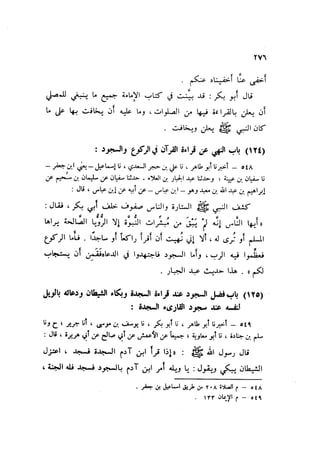 ٢٧٦
أخفى عنّا أخفيناه عنكم .
قال أبو بكر : قد بيّنت في كتاب الإمامة جميع ما ينبغي للمصلي
أن يعلن بالقراءة فيها من الصلوات ، وما عليه أن يخافت بها على ما
كان النبي ﷺ يعلن ويخافت .
(١٢٤) باب النهي عن قراءة القرآن في الركوع والسجود :
٥٤٨ – أخبرنا أبو طاهر ، نا علي بن حجر السعدي ، نا إسماعيل – يعني ابن جعفر –
نا سفيان بن عيينة ؛ وحدثنا عبد الجبار بن العلاء . حدثنا سفيان عن سليمان بن سحيم عن
إبراهيم بن عبد الله بن معبد وهو – ابن عباس – عن أبيه عن إبن عباس ، قال :
كشف النبي ﷺ الستارة والناس صفوف خلف أبي بكر ، فقال :
«أيها الناس إنه لم يبق من مبشرات النبوة إلا الرؤيا الصالحة يراها
المسلم أو تُرى له ، ألا إني نهيت أن أقرأ راكعاً أو ساجداً . فأما الركوع
فعظموا فيه الرب ، وأما السجود فاجتهدوا في الدعاء فقمن أن يستجاب
لكم» . هذا حديث عبد الجبار .
(١٢٥) باب فضل السجود عند قراءة السجدة وبكاء الشيطان ودعائه بالويل
لنفسه عند سجود القارىء السجدة :
٥٤٩ – أخبرنا أبو طاهر ، نا أبو بكر ، نا يوسف بن موسى ، أنا جرير ؛ ح ونا
سلم بن جنادة ، نا أبو معاوية ؛ جميعا عن الأعمش عن أبي صالح عن أبي هريرة ، قال :
قال رسول الله ﷺ : «إذا قرأ ابن آدم السجدة فسجد ، اعتزل
الشيطان يبكي ويقول : يا ويله أمر ابن آدم بالسجود فسجد فله الجنة ،
٥٤٨ – م الصلاة ٢٠٨ من طريق اسماعيل بن جعفر .
٥٤٩ – م الإيمان ١٣٣ .